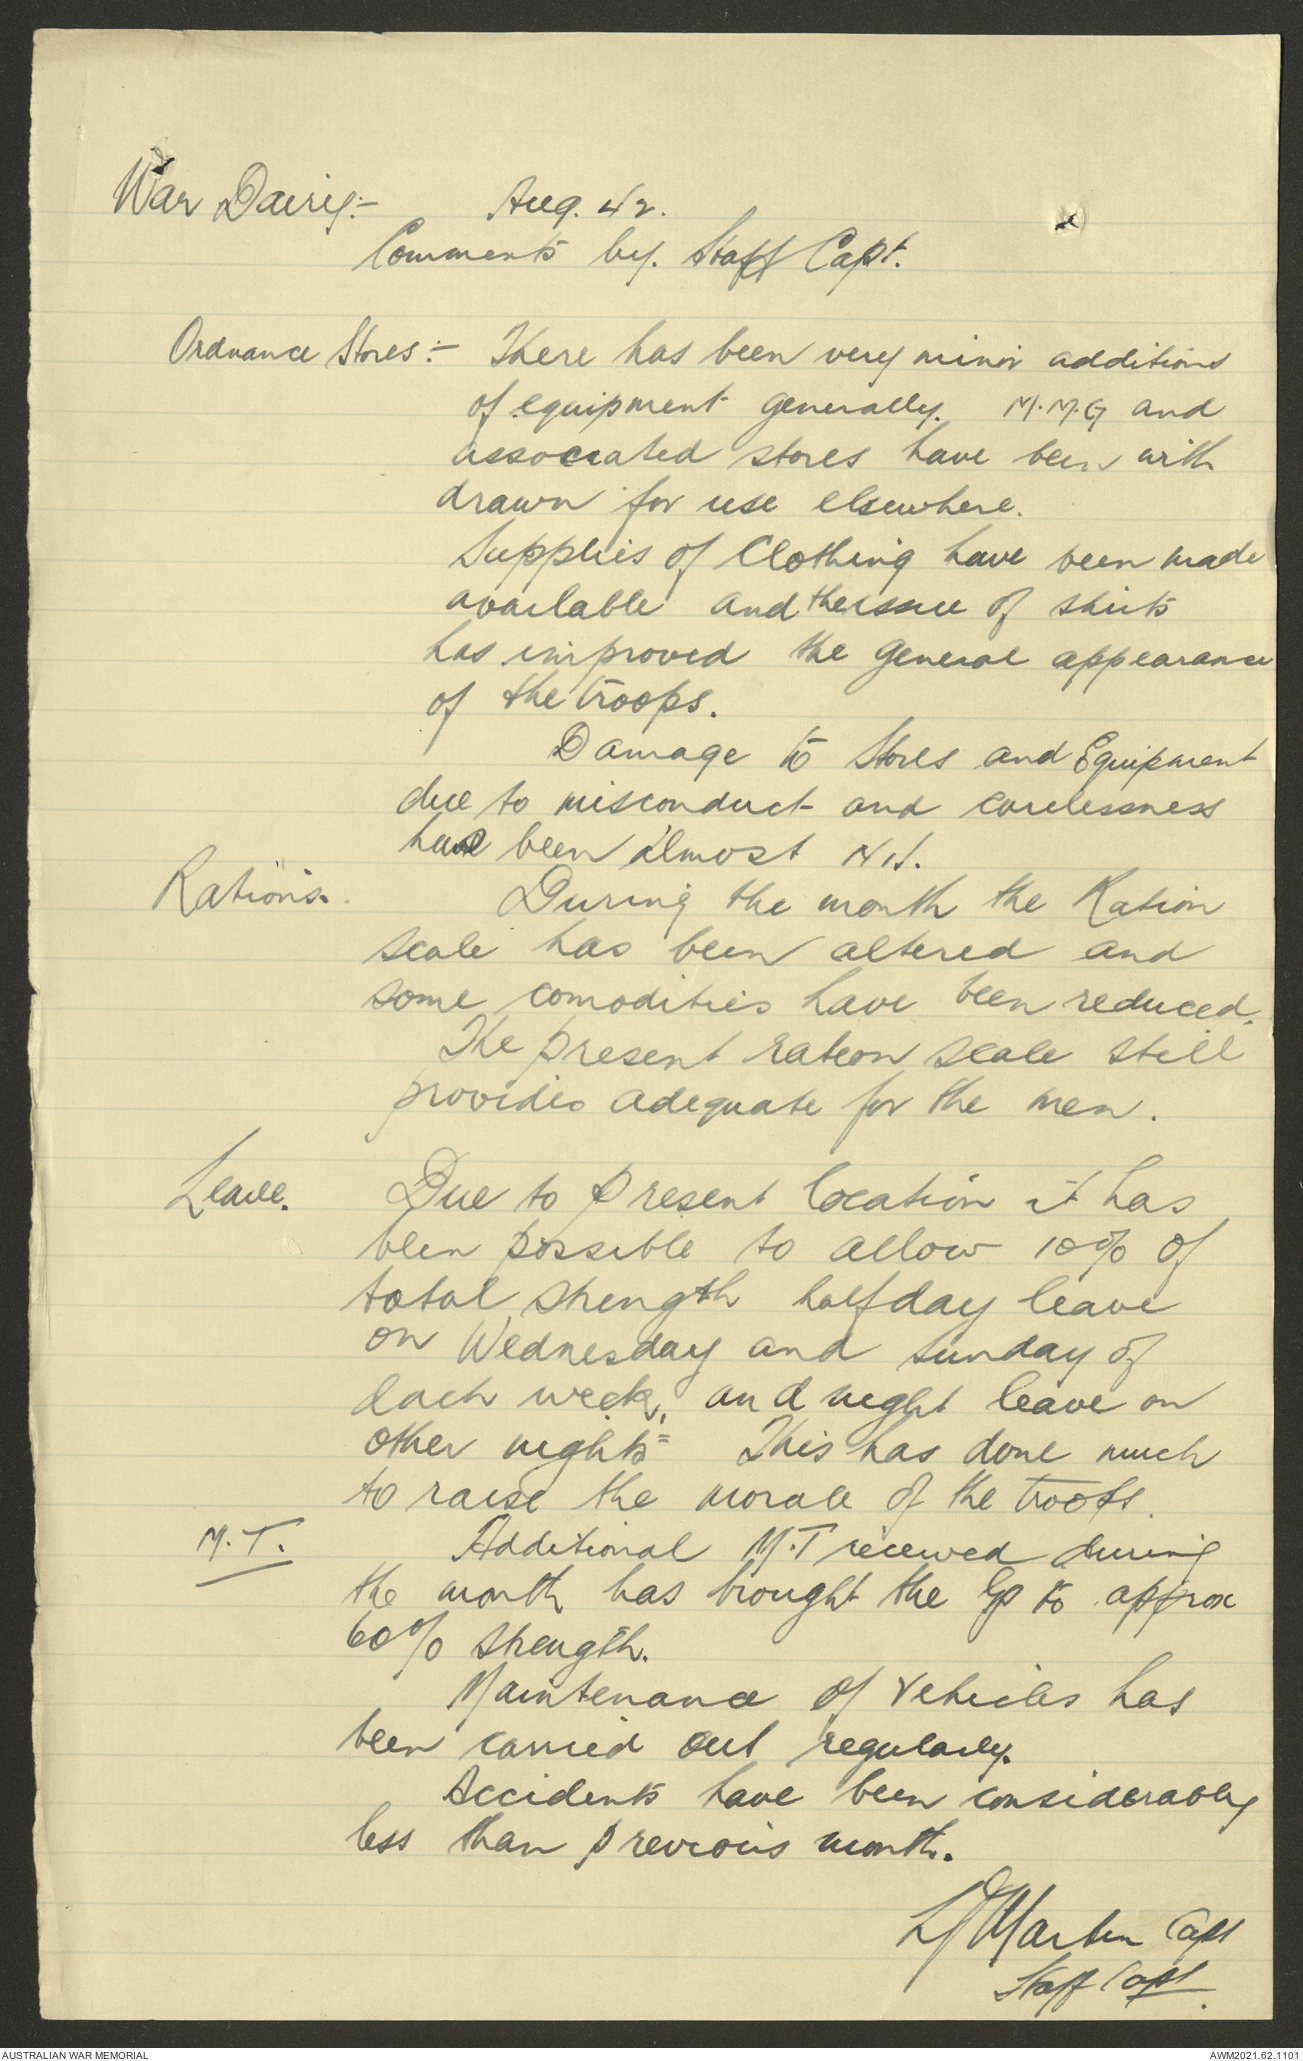 War Dairy:- Aug. 42.
Comments by. Staff Capt.
Ordnance Stores:- There has been very minor additions
of equipment generally. M.M.G and
associated stores have been with
drawn for use elsewhere.
Supplies of Clothing have been made
available and the issue of shirts
has improved the general appearance
of the troops.
Damage to Stores and Equipment
due to misconduct and carelessness
have been almost Nil.
Rations. During the month the Ration
scale has been altered and
some comodities have been reduced.
The present ration scale still
provides adequate for the men.
Leave. Due to present location it has
been possible to allow 10% of
total strength half day leave
on Wednesday and Sunday of
each week, and night leave on
other nights= This has done much
to raise the morale of the troops.
M.T. Additional M.T received during
the month has brought the Gp to approx
60% strength.
Maintenance of Vehicles has
been carried out regularly.
Accidents have been considerably
less than previous month.
Martin Capt
Staff Capt.
AUSTRALIAN WAR MEMORIAL AWM2021.62.1101